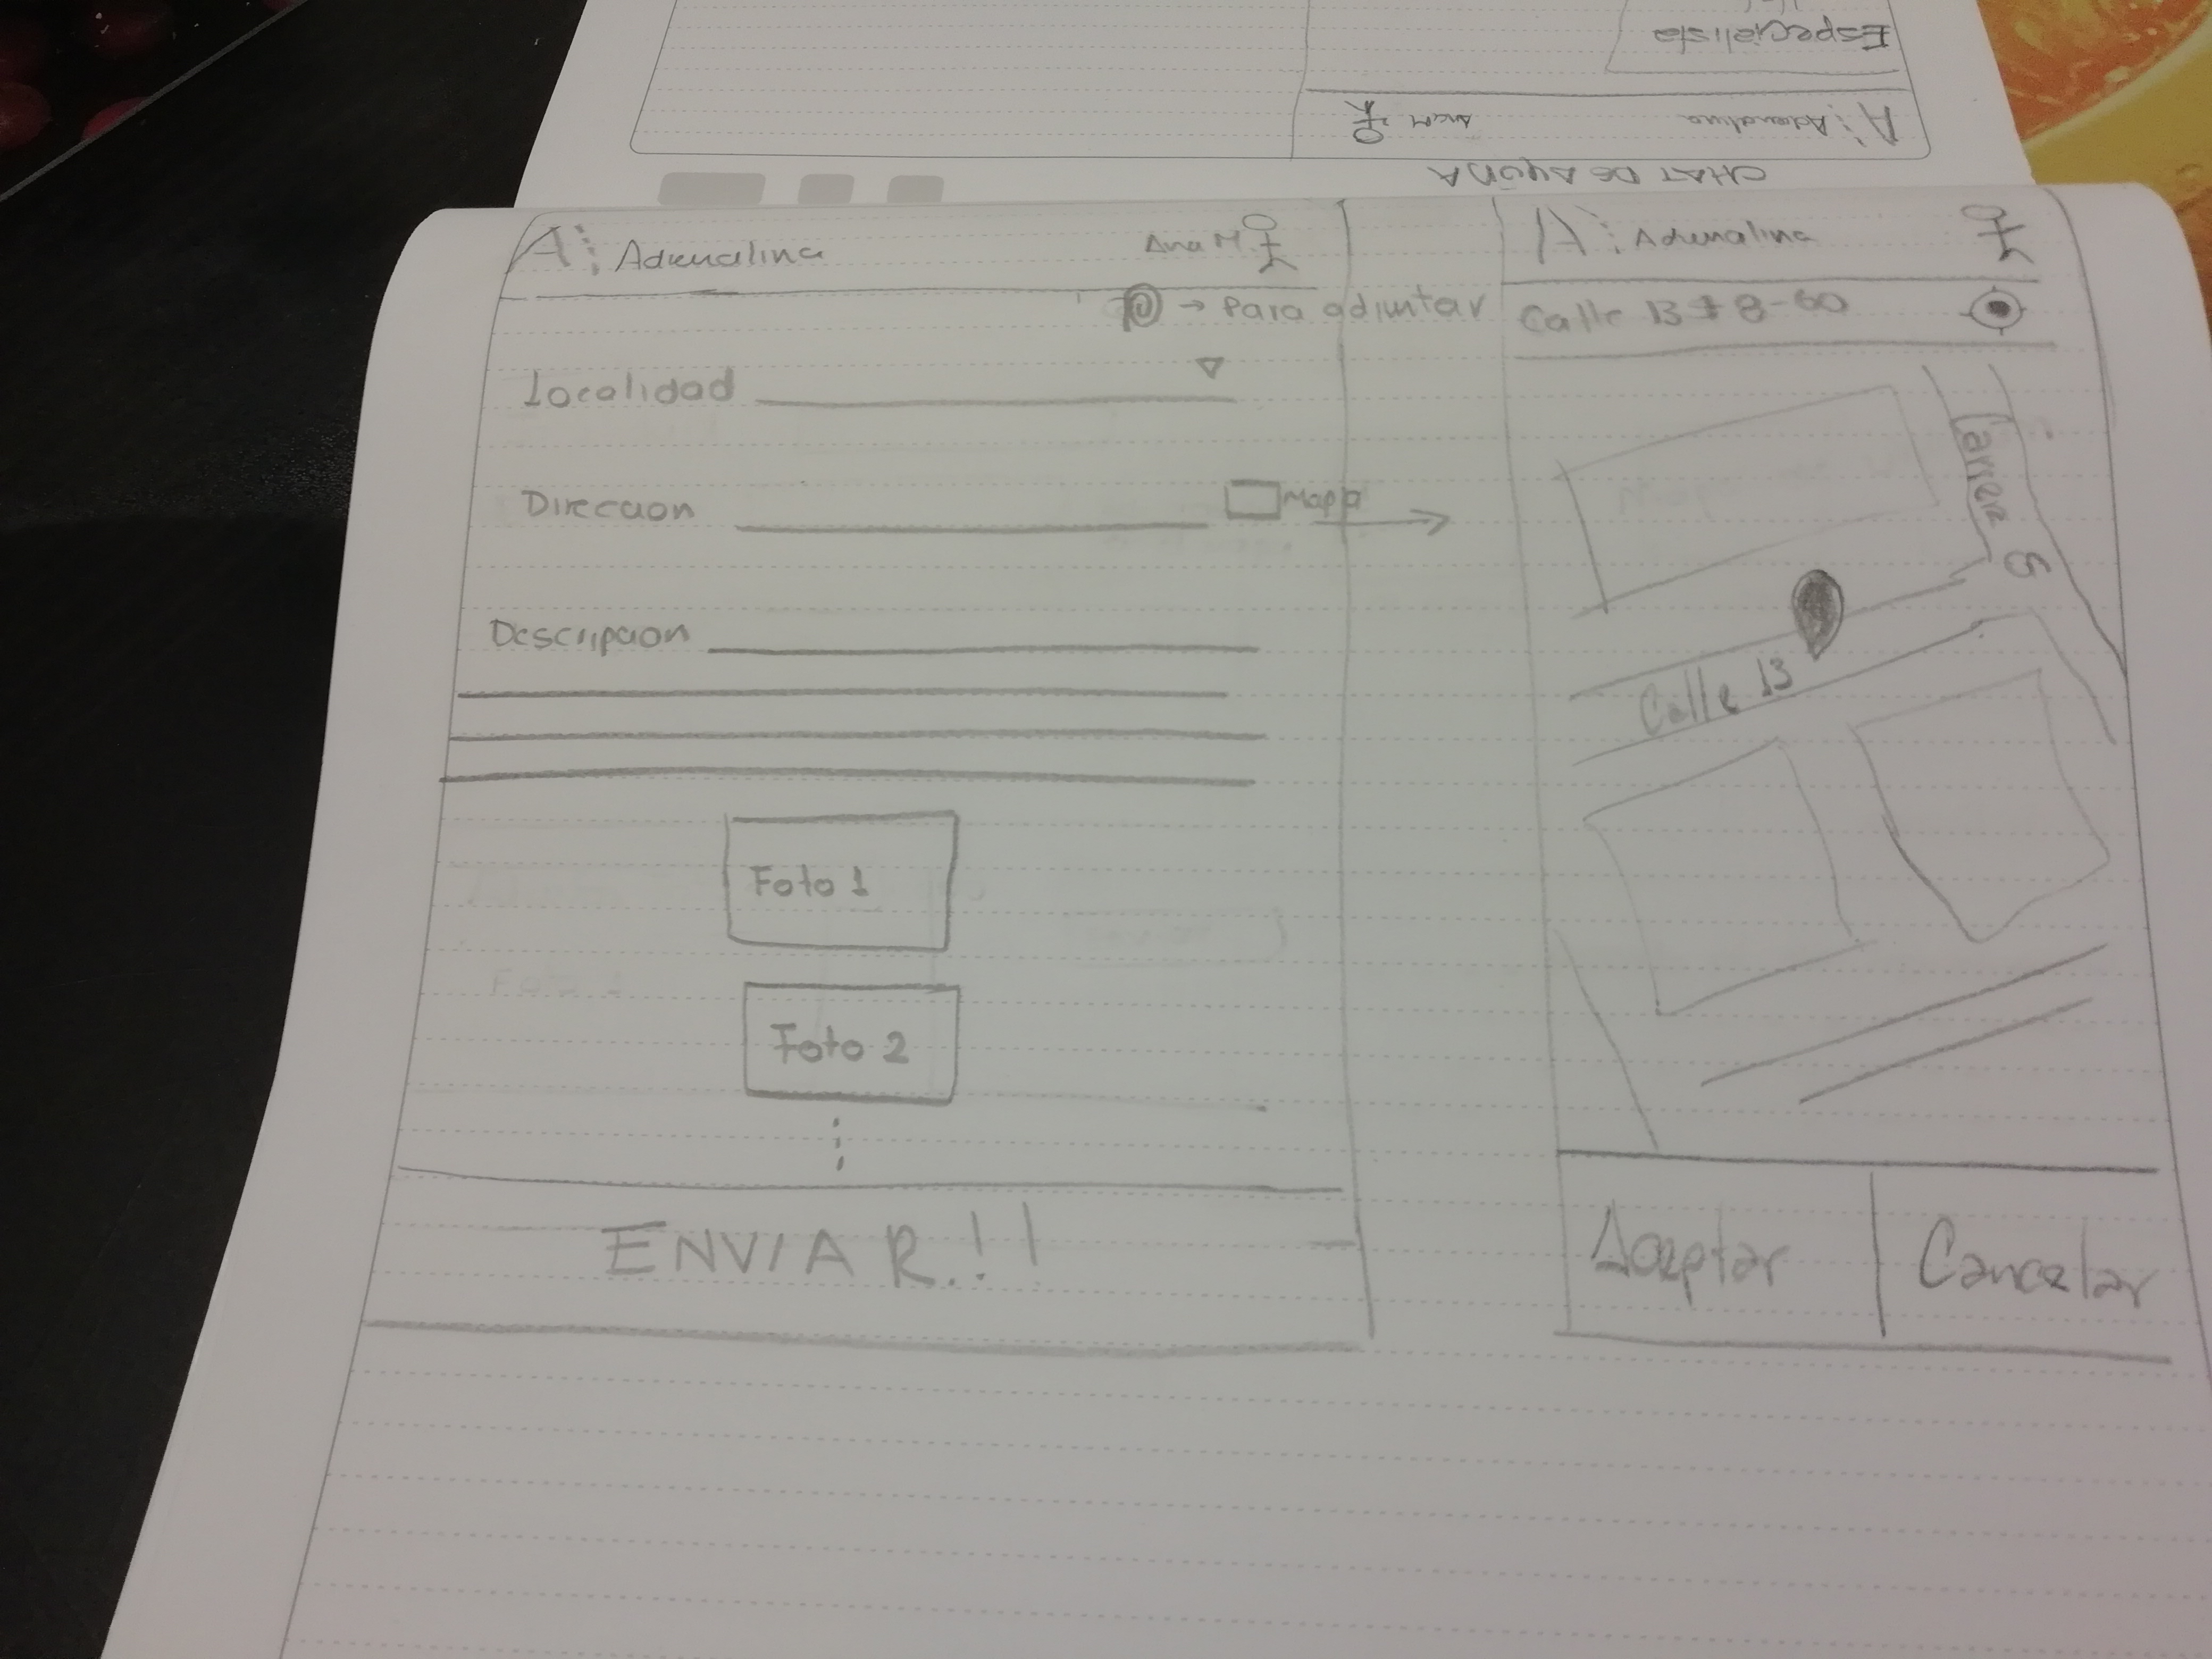 Especialista
A: Adrenalina Ana M
CHAT DE AYUDA
A: Adrenalina Ana M
→ Para adjuntar
Localidad
Direccion Mapa
Descripcion
Foto 1
Foto 2
ENVIAR!!
A: Adrenalina
Calle 13 # 8-60
Carrera 5
Calle 13
Aceptar Cancelar